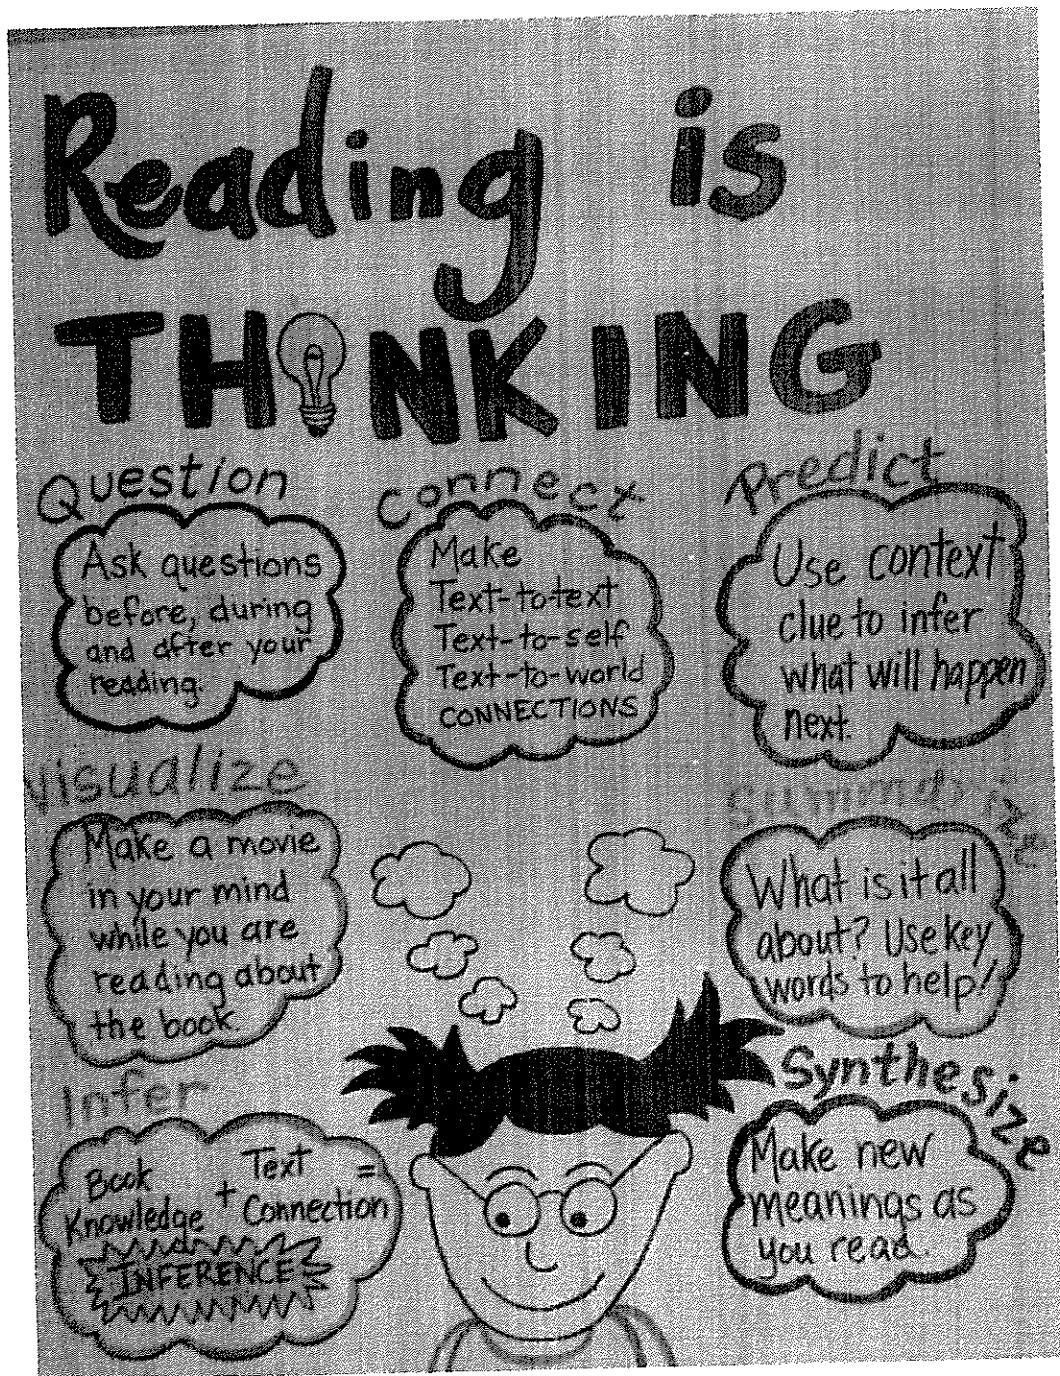 Reading is
THINKING
Question
Ask questions
before, during
and after your
reading.
Connect
Make
Text-to-text
Text-to-self
Text-to-world
CONNECTIONS
Predict
Use context
clue to infer
what will happen
next.
Visualize
Make a movie
in your mind
while you are
reading about
the book.
Summarize
What is it all
about? Use key
words to help!
Infer
Book Knowledge + Text Connection =
INFERENCE
Synthesize
Make new
meanings as
you read.